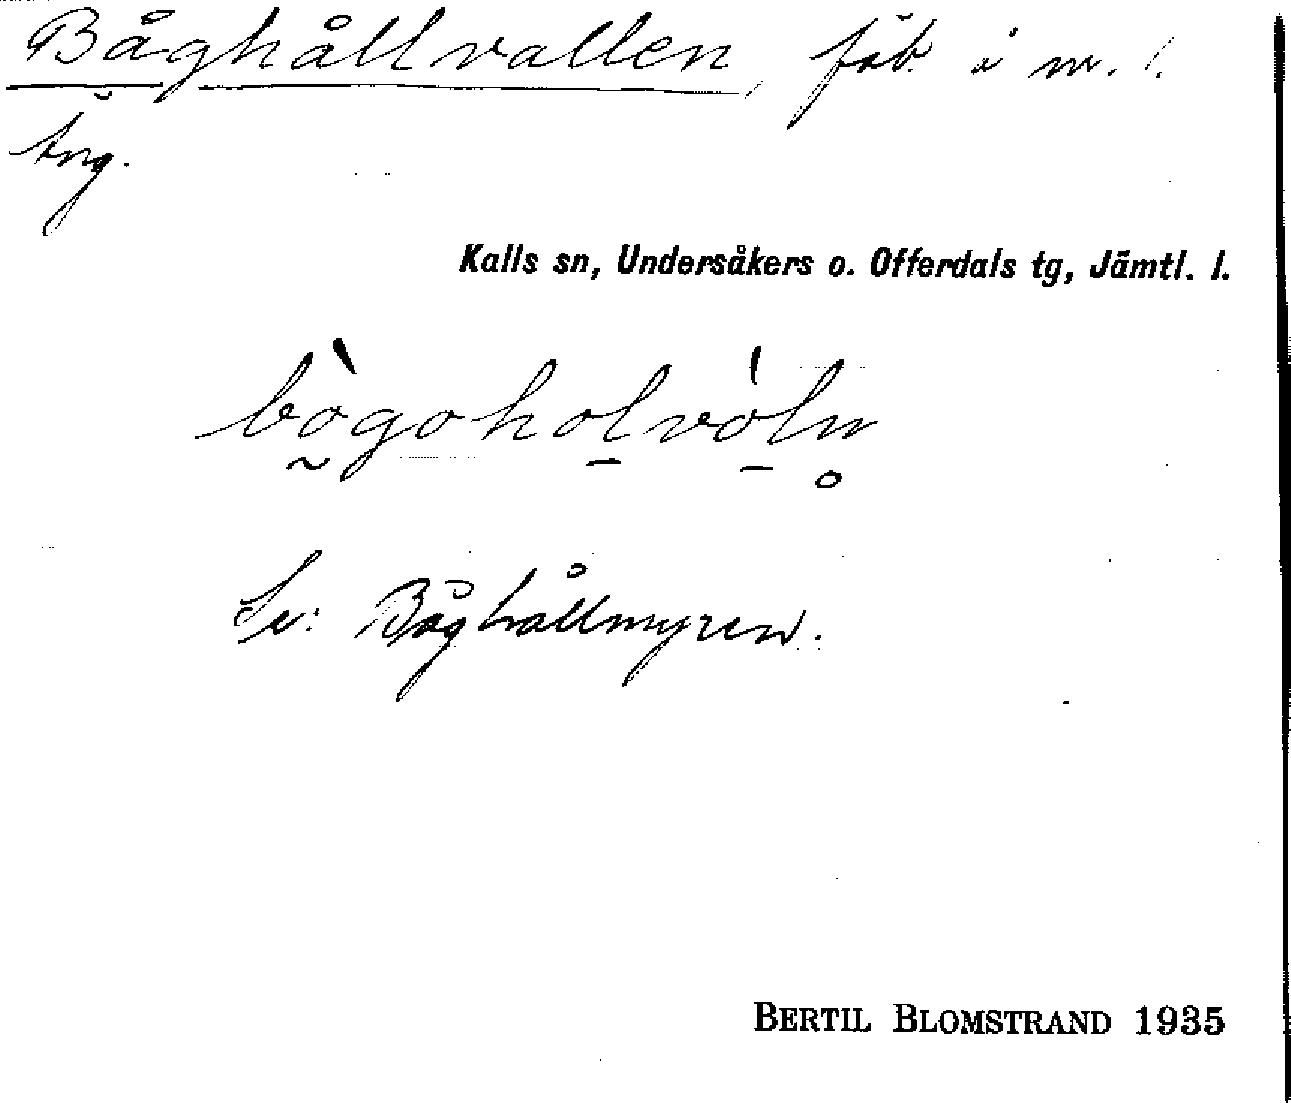 Båghållvallen, fäb. i nv. l.
äng.
Kalls sn, Undersåkers o. Offerdals tg, Jämtl. l.
bògoholvóln̥
Se: Båghållmyren.
BERTIL BLOMSTRAND 1935